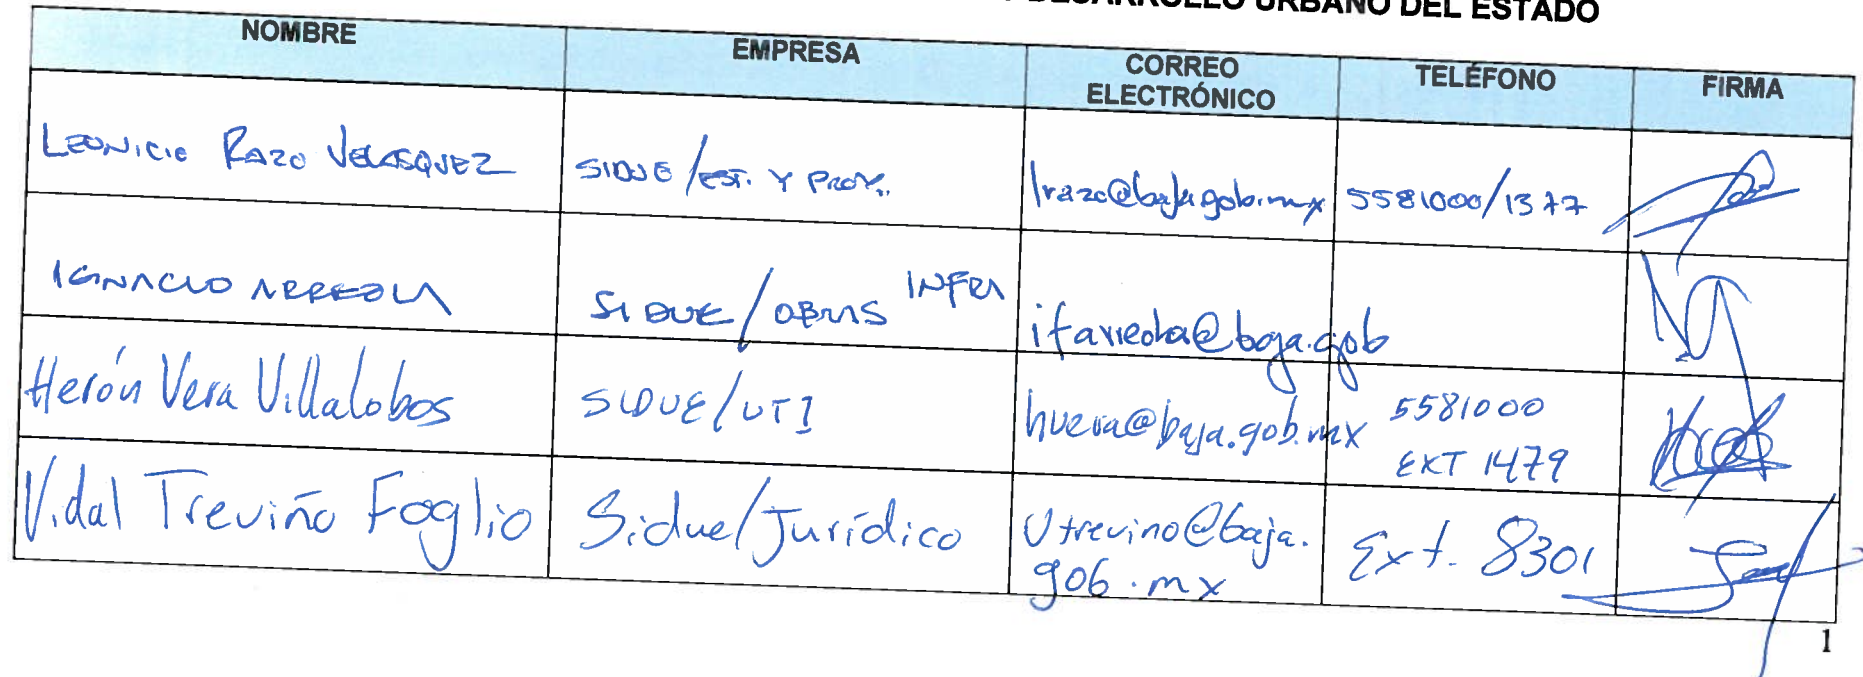 DESARROLLO URBANO DEL ESTADO
NOMBRE EMPRESA CORREO ELECTRÓNICO TELÉFONO FIRMA
LEONICIO RAZO VELASQUEZ SIDUE/EST. Y PROY. lrazo@baja.gob.mx 5581000/1377
IGNACIO ARREOLA SIDUE/OBRAS INFRA ifarreola@baja.gob
Herón Vera Villalobos SIDUE/UTI hvera@baja.gob.mx 5581000
EXT 1479
Vidal Treviño Foglio Sidue/Jurídico vtrevino@baja.
gob.mx Ext. 8301
1